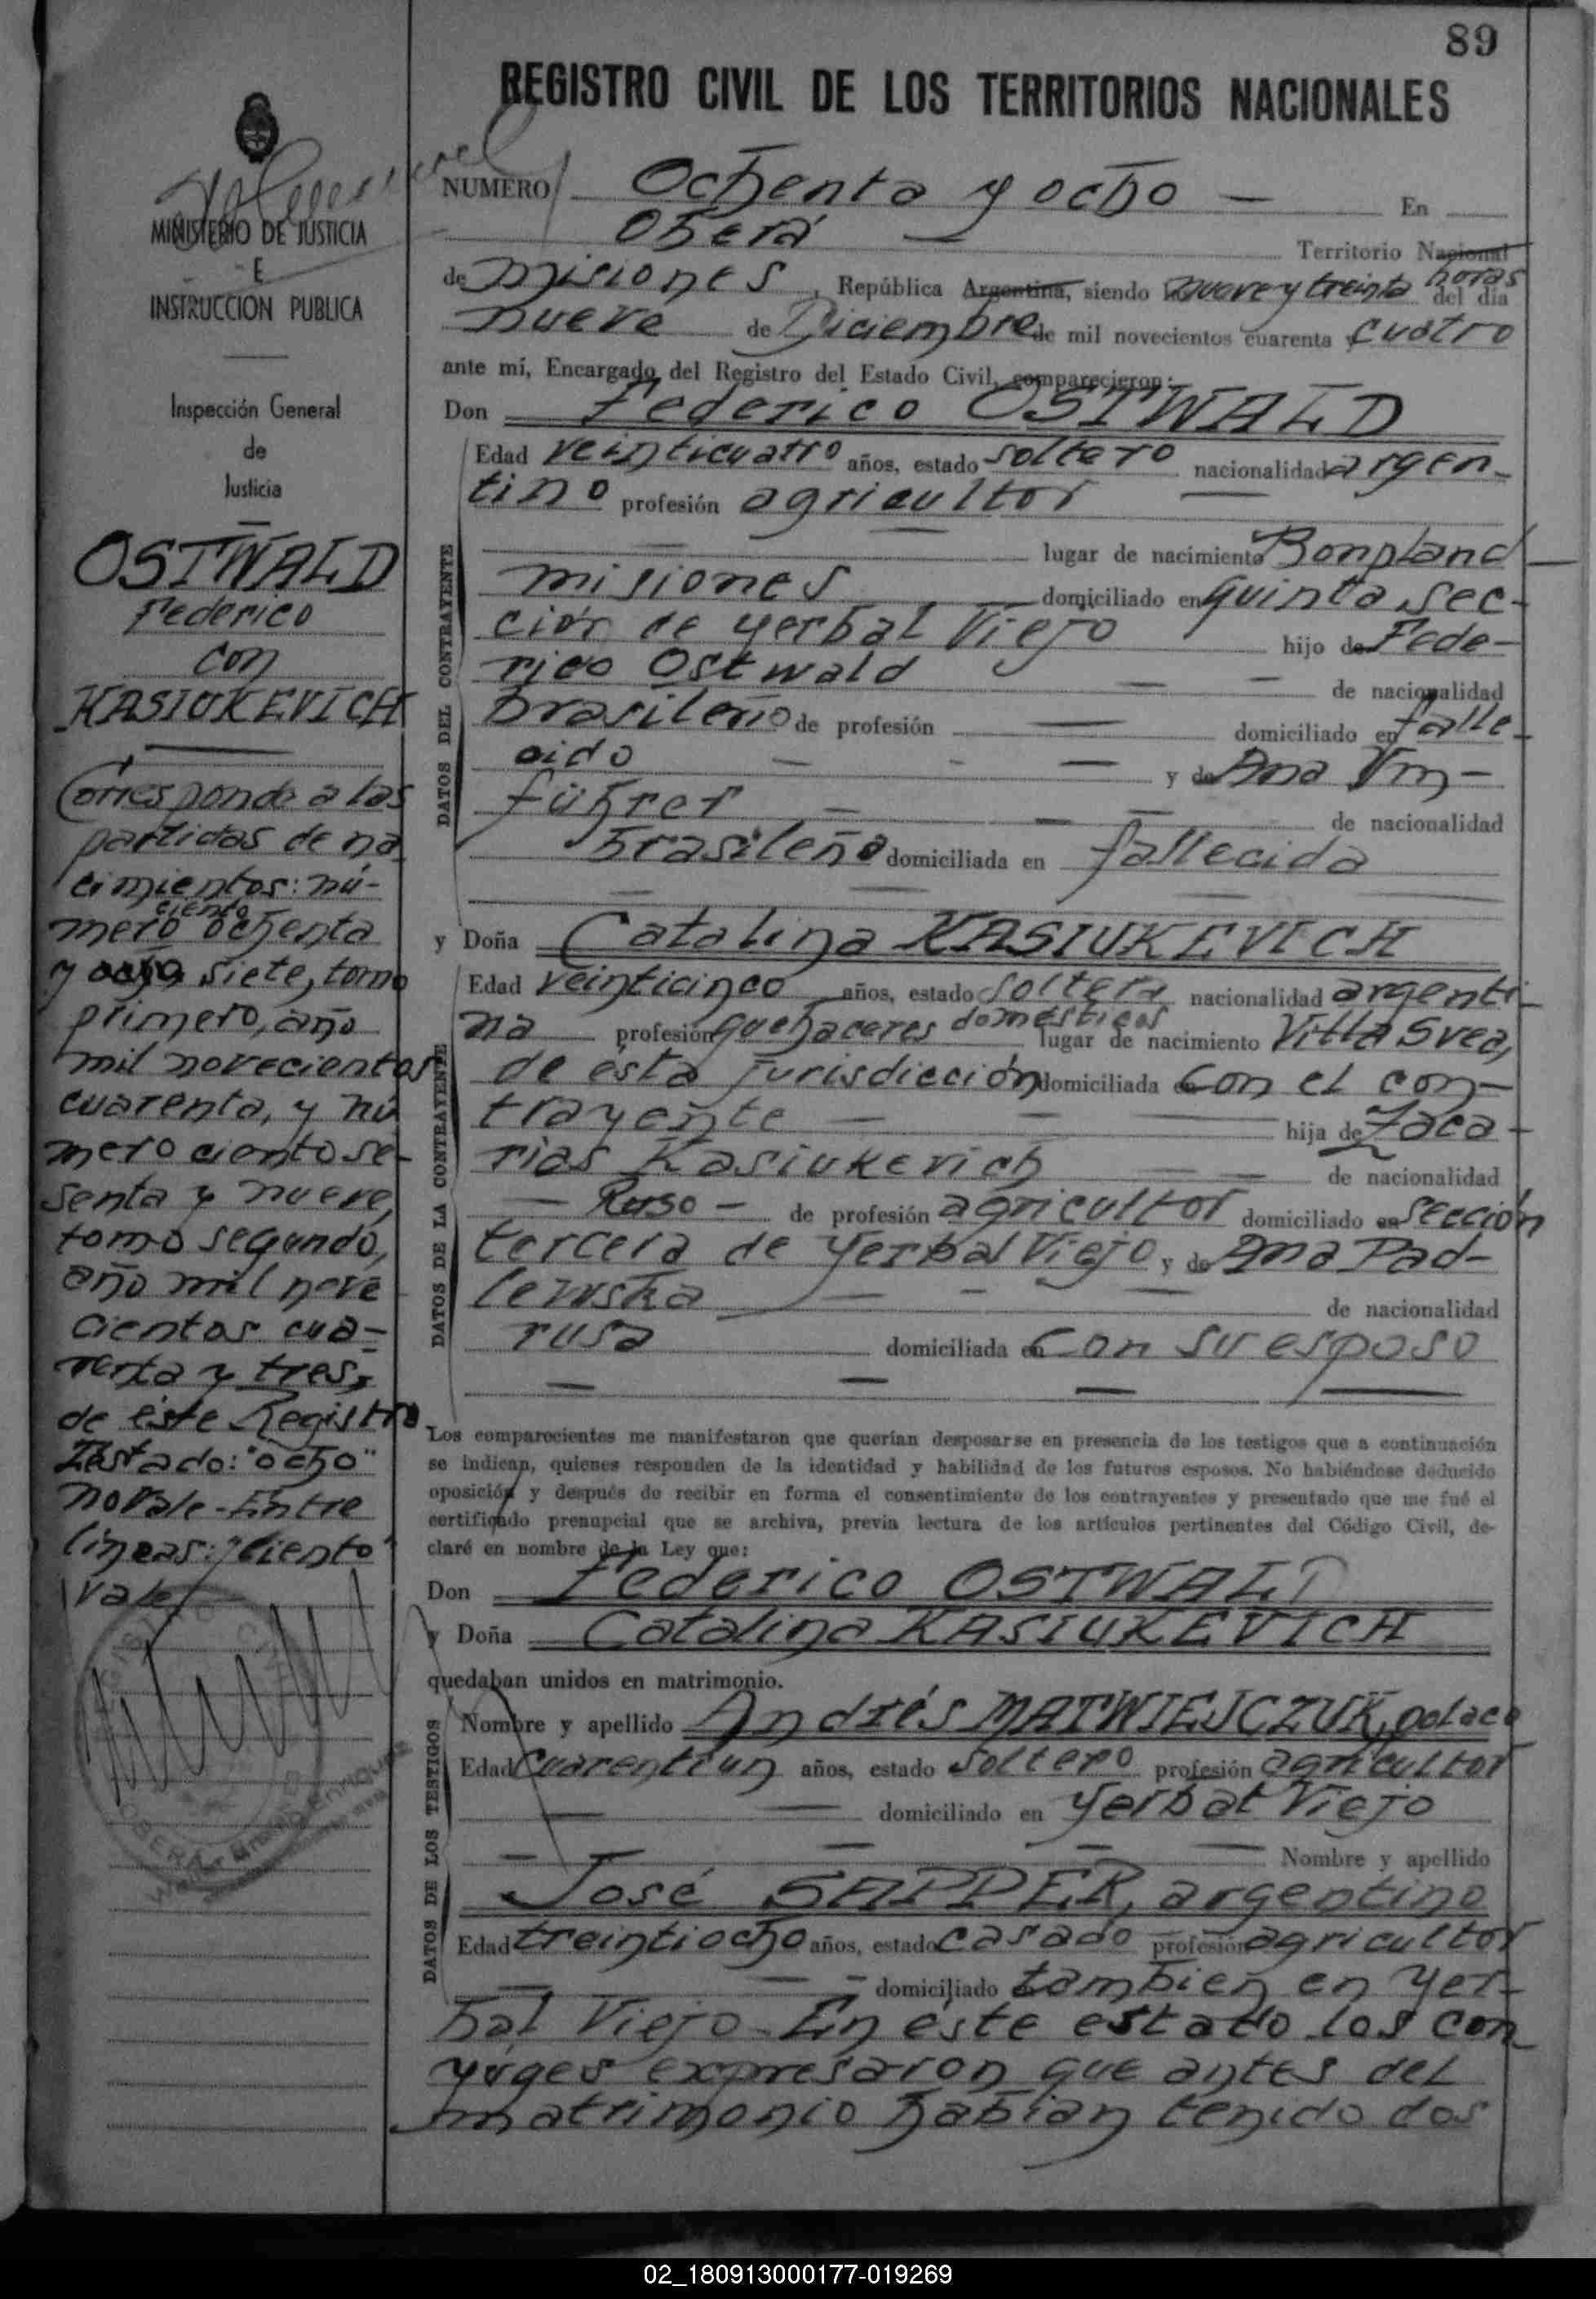 89
REGISTRO CIVIL DE LOS TERRITORIOS NACIONALES
MINISTERIO DE JUSTICIA
E
INSTRUCCION PUBLICA
Inspección General
de
Justicia
OSTWALD
Federico
con
KASIUKEVICH
Corresponde a las
partidas de na
cimientos: nú-
ciento
mero ochenta
y ocho siete, tomo
primero, año
mil novecientos
cuarenta, y nú
mero ciento se-
senta y nueve,
tomo segundo,
año mil nove
cientos cua-
renta y tres,
de éste Registro
Testado: "ocho"
no vale - Entre
líneas: "ciento"
vale
NUMERO Ochenta y ocho — En
Oberá — Territorio Nacional
de Misiones, República Argentina, siendo nueve y treinta horas del día
nueve de Diciembre de mil novecientos cuarenta y cuatro
ante mí, Encargado del Registro del Estado Civil, comparecieron:
Don Federico OSTWALD
DATOS DEL CONTRAYENTE
Edad veinticuatro años, estado soltero nacionalidad argen-
tino profesión agricultor —
— lugar de nacimiento Bonpland —
misiones domiciliado en quinta sec-
ción de yerbal Viejo hijo de Fede-
rico Ostwald — — de nacionalidad
brasileño de profesión — domiciliado en falle
cido — - — y de Ana Vm-
führer — — de nacionalidad
brasileña domiciliada en fallecida
y Doña Catalina KASIUKEVICH
DATOS DE LA CONTRAYENTE
Edad veinticinco años, estado soltera nacionalidad argenti-
na profesión quehaceres domésticos lugar de nacimiento Villa Svea,
de ésta Jurisdicción domiciliada con el con-
trayente — — hija de Zaca-
rias Kasiukevich — — de nacionalidad
— Ruso — de profesión agricultor domiciliado en sección
tercera de Yerbal Viejo y de Ana Pad-
lewska — - — de nacionalidad
rusa domiciliada en con su esposo
— — — —
Los comparecientes me manifestaron que querían desposarse en presencia de los testigos que a continuación
se indican, quienes responden de la identidad y habilidad de los futuros esposos. No habiéndose deducido
oposición y después de recibir en forma el consentimiento de los contrayentes y presentado que me fué el
certificado prenupcial que se archiva, previa lectura de los artículos pertinentes del Código Civil, de-
claré en nombre de la Ley que:
Don Federico OSTWALD
y Doña Catalina KASIUKEVICH
quedaban unidos en matrimonio.
DATOS DE LOS TESTIGOS
Nombre y apellido Andrés MATWIEJCZUK, polaco
Edad cuarentiun años, estado soltero profesión agricultor
— — domiciliado en Yerbal Viejo
— — — — Nombre y apellido
José SAPPER, argentino
Edad treintiocho años, estado casado profesión agricultor
— — - domiciliado tambien en Yer-
bal Viejo - En éste estado los con
yuges expresaron que antes del
matrimonio habian tenido dos
02_180913000177-019269